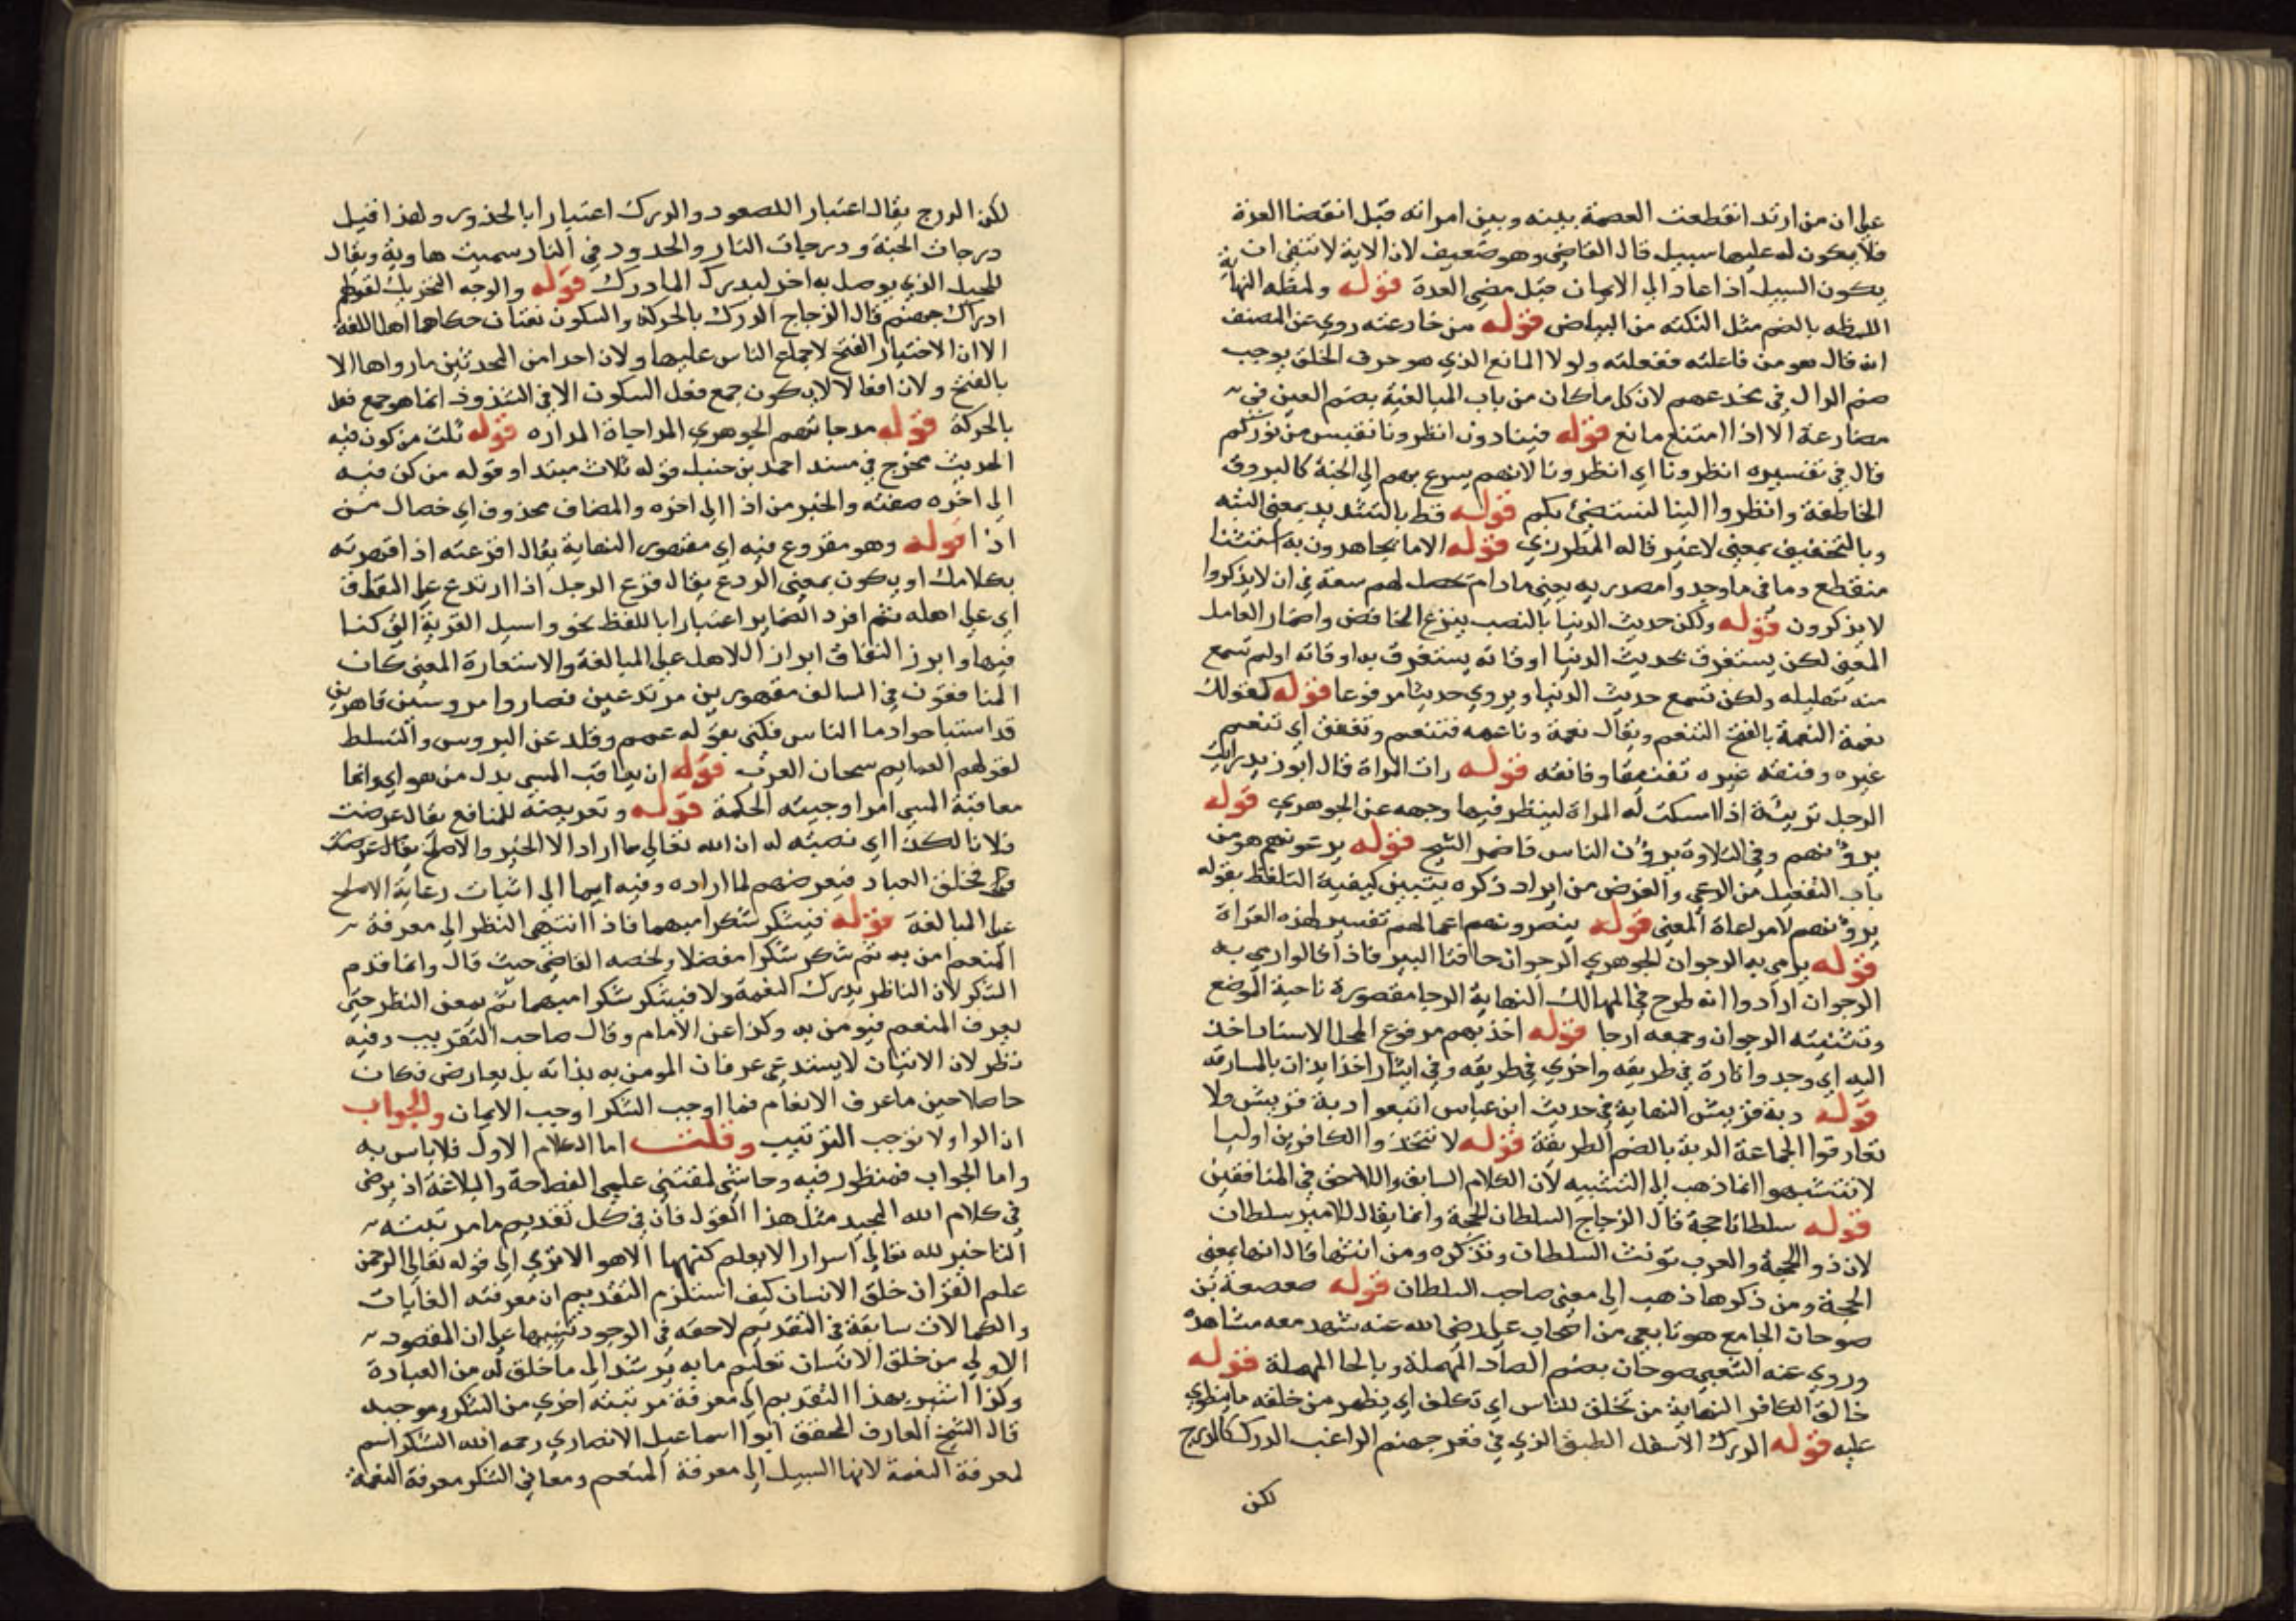 على ان من ارتد انقطعت العصمة بينه وبين امراته قبل انقضا العدة
فلا يكون له عليها سبيل قال القاضي وهو ضعيف لان الاية لا تنفي ان
يكون السبيل اذا عاد الى الايمان قبل مضي العدة قوله ولمظه النهاية
اللمظه بالضم مثل النكته من البياض قوله من خادعته روي عن المصنف
انه قال هو من فاعلته ففعلته ولولا المانع الذي هو حرف الحلق بوجب
ضم الدال في يخدعهم لان كل ما كان من باب المبالغة بضم العين في
مضارعة الا اذا امتنع مانع قوله فينادون انظرونا نقتبس من نوركم
قال في تفسيره انظرونا اي انظرونا لانهم يسرع بهم الى الجنة كالبروق
الخاطفة وانظروا الينا لنستضئ بكم قوله قط بالتشديد بمعنى البته
وبالتخفيف بمعنى لا غير قاله المطرزي قوله الا ما يجاهرون به استثنا
منقطع وما في ما وجدوا مصدريه يعني مادام تحصل لهم سعة في ان لا يذكروا
لا يذكرون قوله ولكن حديث الدنيا بالنصب بنزع الخافض واضمار العامل
المعنى لكن يستغرق بحديث الدنيا اوقاته يستغرق به اوقاته او لم تسمع
منه تهليله ولكن تسمع حديث الدنيا ويروي حديثا مرفوعا قوله كقولك
نعمة النعمة بالفتح التنعم ويقال نعمة وناعمه فتنعم وتفنق اي تنعم
غيره وفنقه غيره تفنيقا وفانقه قوله رات المراة قال ابو زيد رايت
الرجل ترئية اذا امسكت له المراة لينظر فيها وجهه عن الجوهري قوله
يرؤنهم وفي التلاوة يرؤن الناس فاضمر الشيخ قوله يرعونهم هو من
باب التفعيل من الرعي والغرض من ايراد ذكره يتبين كيفية التلفظ بقوله
يرؤنهم لا مراعاة المعنى قوله يبصرونهم اعمالهم تفسير لهذه القراة
قوله يرمي به الرجوان الجوهري الرجوان حافتا البير فاذا قالوا رمي به
الرجوان ارادوا انه طرح في المهالك النهاية الرجا مقصورة ناحية الموضع
وتثنيته الرجوان وجمعه ارجا قوله اخذ بهم مرفوع المحل لاسناد اخذ
اليه اي وجدوا تارة في طريقه واخري في طريقه وفي ايثار اخذ ايذان بالمسارقه
قوله دبة قريش النهاية في حديث ابن عباس اتبعوا دبة قريش ولا
تفارقوا الجماعة الدبة بالضم الطريقة قوله لا تتخذوا الكافرين اوليا
لا تتشبهوا انما ذهب الى التشبيه لان الكلام السابق واللاحق في المنافقين
قوله سلطانا حجة قال الزجاج السلطان الحجة وانما يقال للامير سلطان
لانه ذو الحجة والعرب تؤنث السلطان وتذكره ومن انثها قال انها بمعنى
الحجة ومن ذكرها ذهب الى معنى صاحب السلطان قوله صعصعة بن
صوحان الجامع هو تابعي من اصحاب علي رضي الله عنه شهد معه مشاهده
وروي عنه الشعبي صوحان بضم الصاد المهملة وبالحا المهملة قوله
خالق الكافر النهاية من تخلق للناس اي تكلف اي يظهر من خلقه ما ينطوي
عليه قوله الدرك الاسفل الطبق الذي في قعر جهنم الراغب الدرك كالدرج
لكن
لكن الدرج يقال اعتبارا للصعود والدرك اعتبارا بالحدور ولهذا قيل
درجات الجنة ودرجات النار والحدور في النار سميت هاوية ويقال
للحبل الذي يوصل به اخر ليدرك الما درك قوله والوجه التحريك لقولهم
ادراك جهنم قال الزجاج الدرك بالحركة والسكون لغتان حكاهما اهل اللغة
الا ان الاختيار الفتح لاجماع الناس عليها ولان احدا من المحدثين ما رواها الا
بالفتح ولان افعالا لا يكون جمع فعل السكون الا في الشذوذ انما هو جمع فعل
بالحركة قوله مدجاتهم الجوهري المداجاة المداراه قوله ثلث من كون فيه
الحديث مخرج في مسند احمد بن حنبل قوله ثلاث مبتدا وقوله من كن فيه
الى اخره صفته والخبر من اذا الى اخره والمضاف محذوف اي خصال من
اذا قوله وهو مقروع فيه اي مقهور النهاية يقال اقرعته اذا قهرته
بكلامك او يكون بمعنى الردع يقال قرع الرجل اذا ارتدع على النفاق
اي على اهله ثم افرد الضماير اعتبارا باللفظ نحو واسيل القرية التي كنا
فيها وابرز النفاق ابراز الاهل على المبالغة والاستعارة المعنى كان
المنافقون في السالف مقهورين مرتدعين فصاروا مروسين قاهرين
قد استباحوا دما الناس فكنى بقوله عمم وقلد عن البروس والتسلط
لقولهم العمايم سحان العرب قوله ان يعاقب المسي بدل من هو اي وانما
معاقبة المسي امر اوجبته الحكمة قوله وتعريضه للمنافع يقال عرضت
فلانا لكذا اي نصبته له ان الله تعالى ما اراد الا الخير والاصلح يقال عرضت
فخلق العباد فيعرضهم لما اراده وفيه ايما الى اثبات رعاية الاصلح
على المبالغة قوله فيشكر شكرا مبهما فاذا انتهى النظر الى معرفة
المنعم امن به ثم شكر شكرا مفصلا ولخصه القاضي حيث قال وانما قدم
الشكر لان الناظر يدرك النعمة ولا فيشكر شكرا مبهما ثم يمعن النظر حتى
يعرف المنعم فيؤمن به وكذا عن الامام وقال صاحب التقريب وفيه
نظر لان الاتيان لا يستدعي عرفان المومن به بذاته بل بعارض فكان
حاصلا حين ما عرف الانعام فما اوجب الشكر اوجب الايمان والجواب
ان الواو لا توجب الترتيب وقلت اما الكلام الاول فلا باس به
واما الجواب فمنظور فيه وحاشى لمقتني علمي الفصاحة والبلاغة ان يرضى
في كلام الله المجيد مثل هذا القول فان في كل تقديم ما مرتبته
التاخير لله تعالى اسرار لا يعلم كنهها الا هو الا ترى الى قوله تعالى الرحمن
علم القران خلق الانسان كيف استلزم التقديم ان معرفته الغايات
والكمالات سابقة في التقديم لاحقه في الوجود تنبيها على ان المقصود
الاولي من خلق الانسان تعليم ما به يرشد الى ما خلق له من العبادة
وكذا اشير بهذا التقديم الى معرفة مرتبته اخرى من الشكر وموجبه
قال الشيخ العارف المحقق ابوا اسماعيل الانصاري رحمه الله الشكر اسم
لمعرفة النعمة لانها السبيل الى معرفة المنعم ومعاني الشكر معرفة النعمة